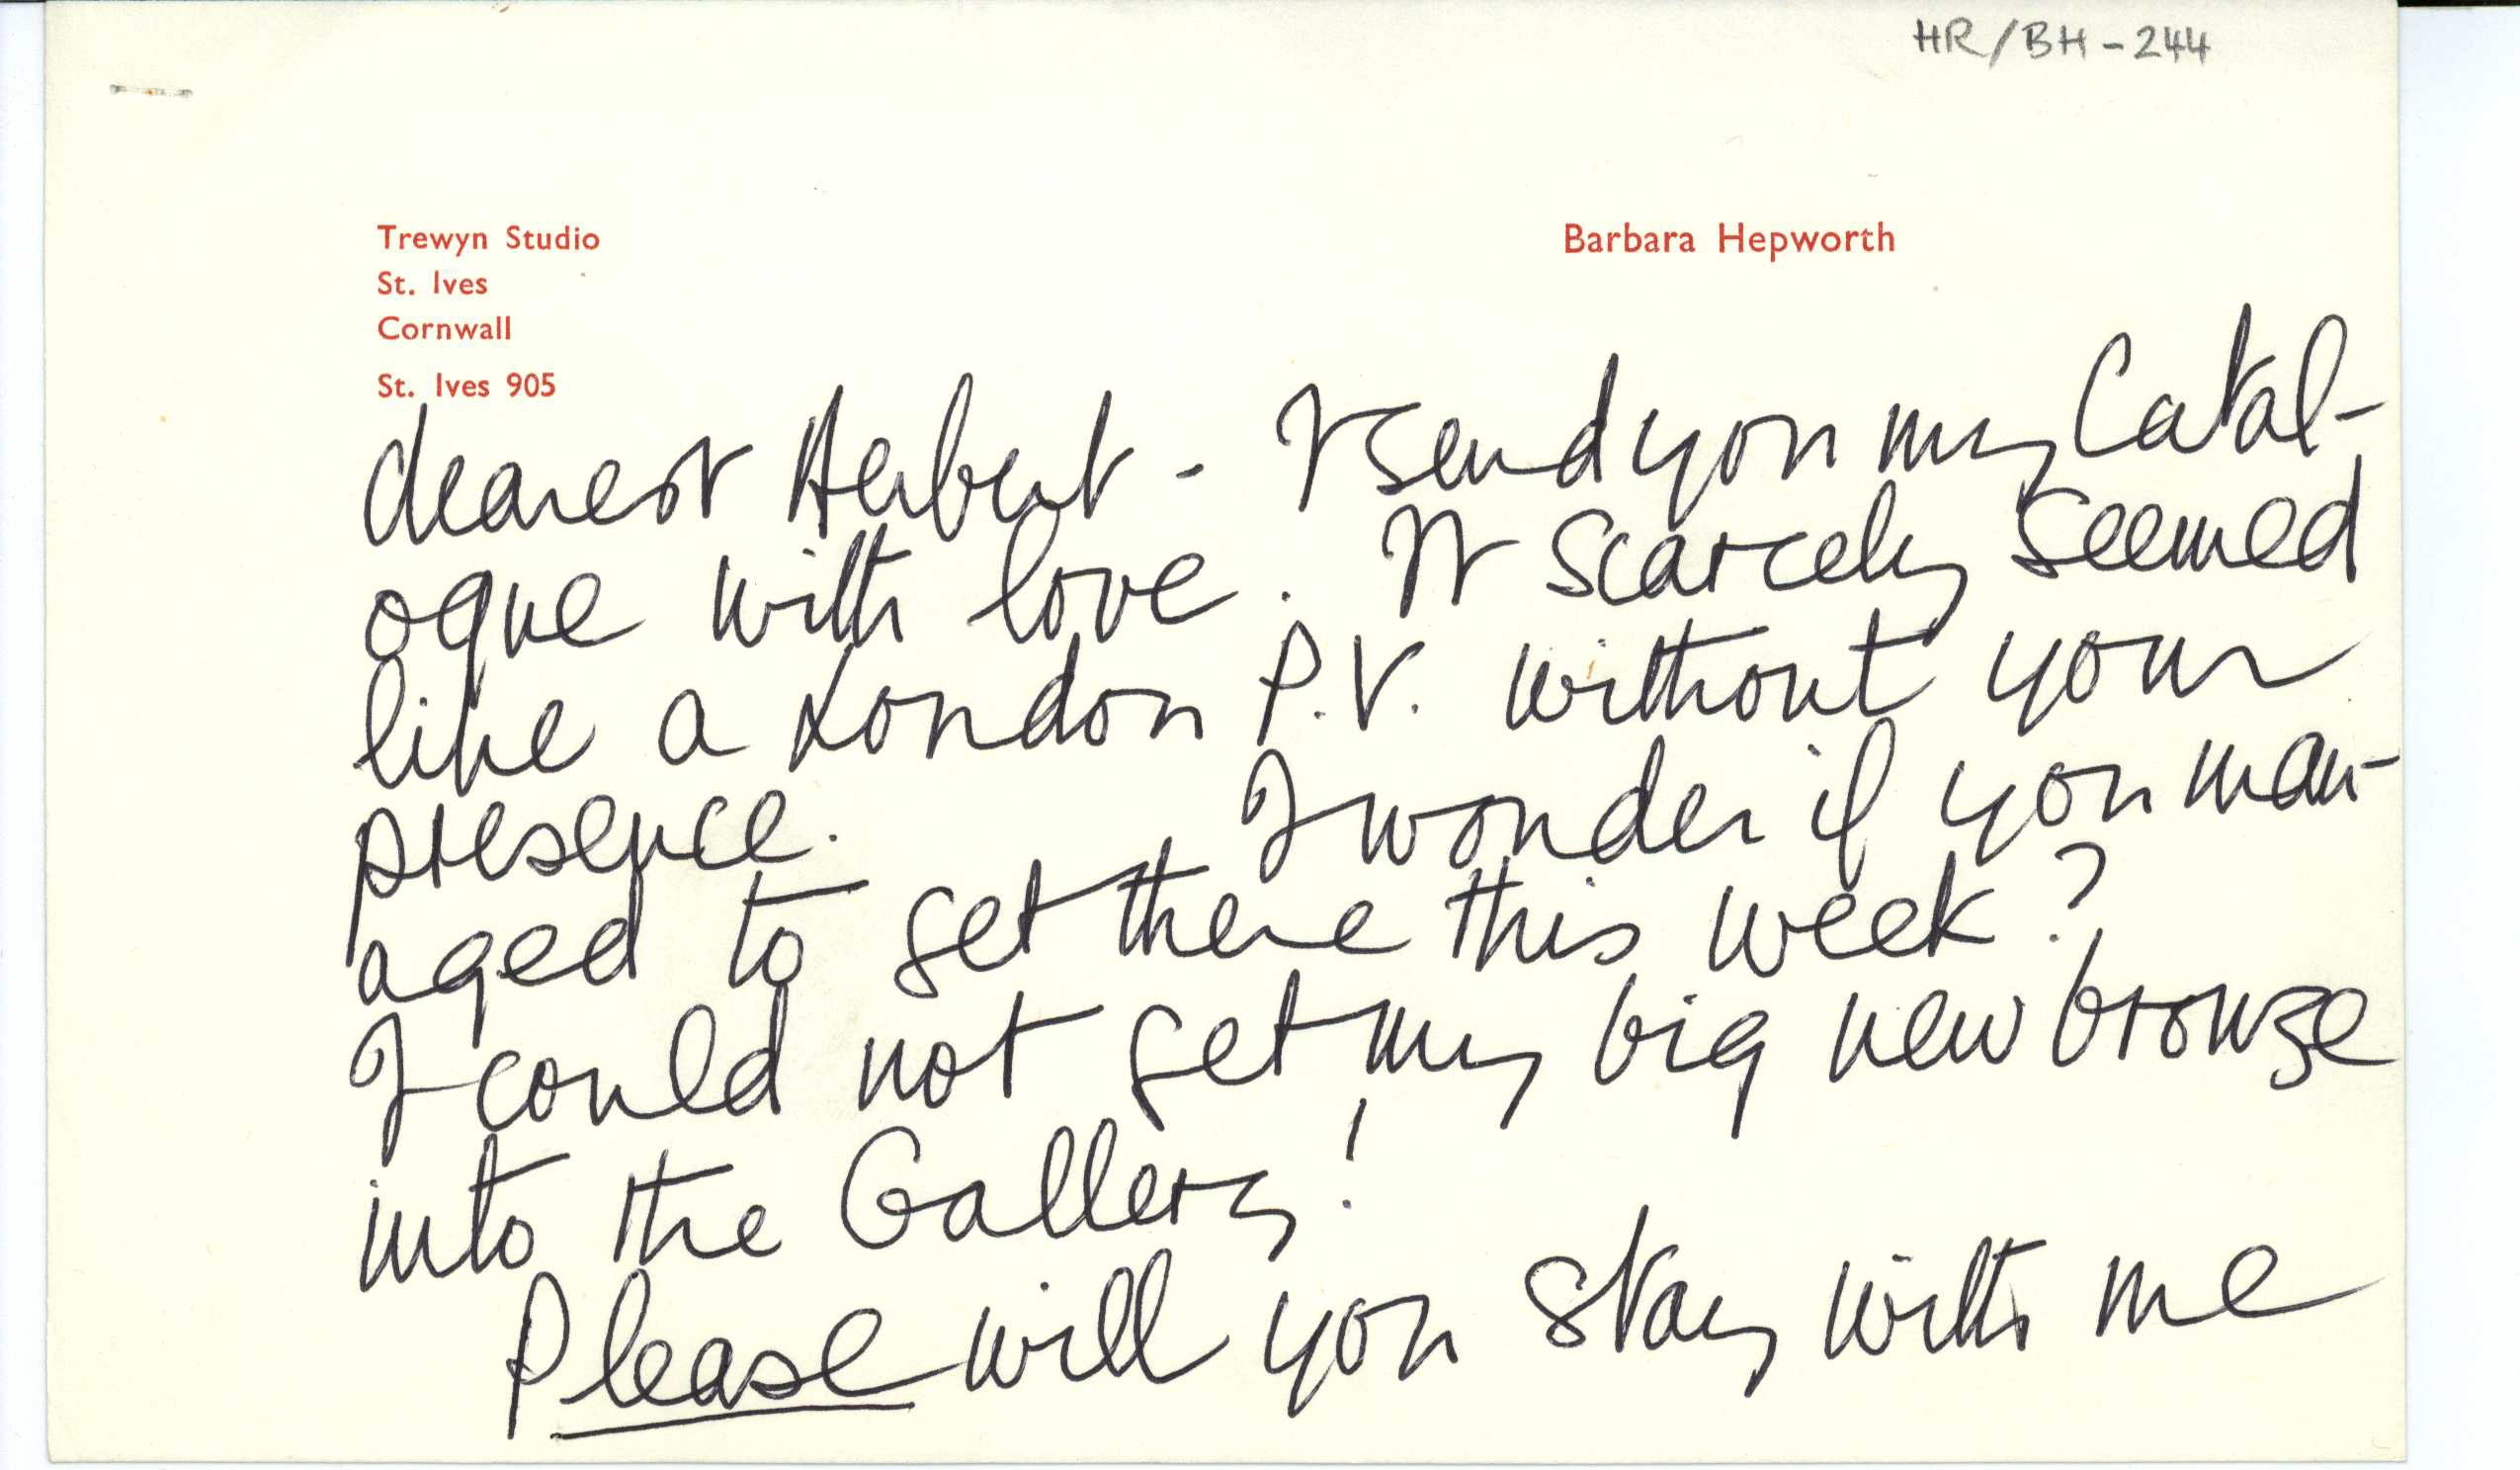 HR/BH-244
Trewyn Studio
St. Ives
Cornwall
St. Ives 905
Barbara Hepworth
dearest Herbert - I send you my Catal-
ogue with love. It scarcely seemed
like a London P.V. without your
presence. I wonder if you man-
aged to get there this week?
I could not get my big new bronze
into the Gallery!
Please will you stay with me